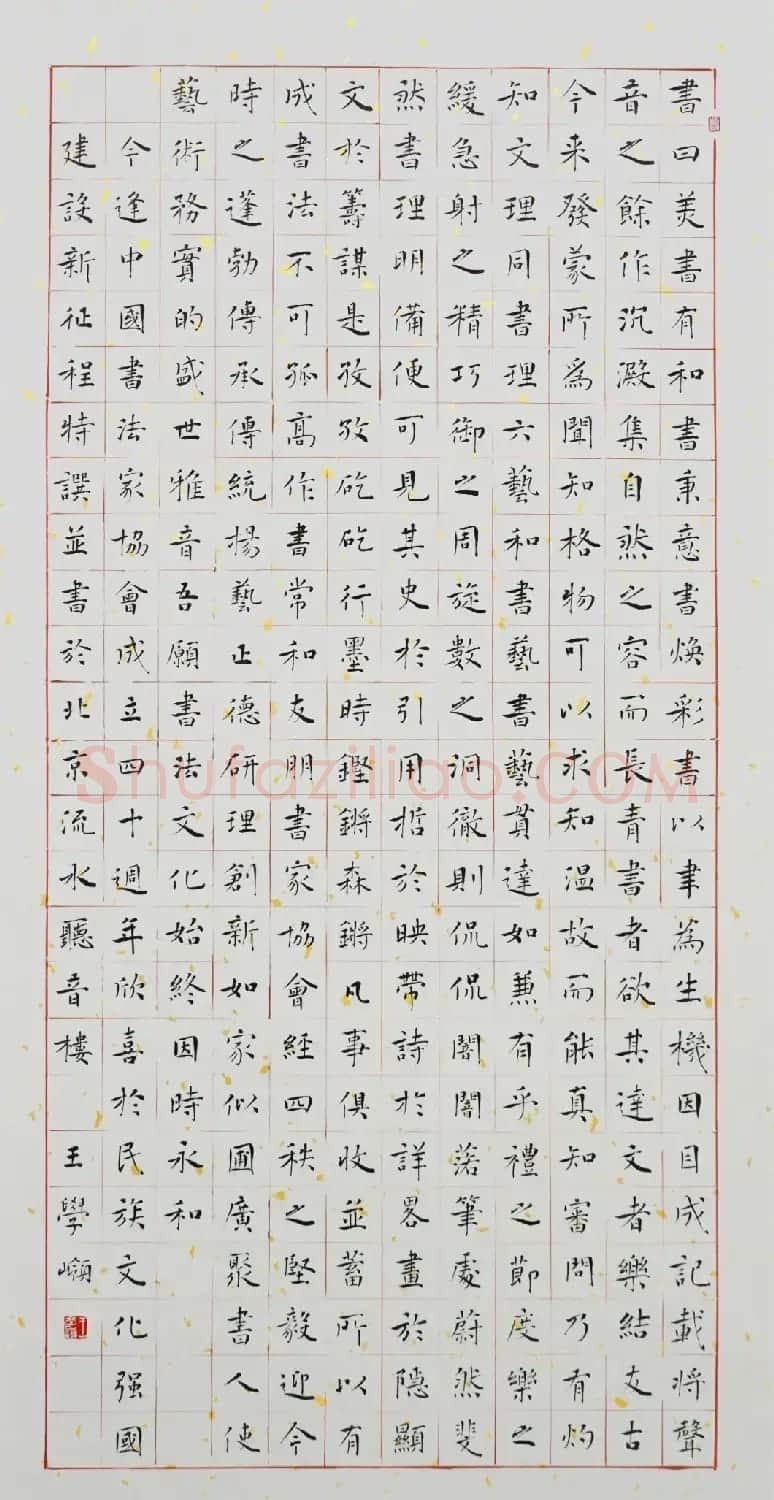 書曰美書有和書秉意書煥彩書以聿為生機因目成記載将聲
音之餘作沉澱集自然之容而長青書者欲其達文者樂結友古
今来發蒙所爲聞知格物可以求知温故而能真知審問乃有灼
知文理同書理六藝和書藝書藝貫達如兼有乎禮之節度樂之
緩急射之精巧御之周旋數之洞徹則侃侃誾誾落筆處蔚然斐
然書理明備便可見其史於引用哲於映帶詩於詳畧畫於隱顯
文於籌謀是孜孜矻矻行墨時鏗鏘森鏘凡事俱收並蓄所以有
成書法不可孤高作書常和友朋書家協會經四秩之堅毅迎今
時之蓬勃傳承傳統揚藝正德研理創新如家似圃廣聚書人使
藝術務實的盛世雅音吾願書法文化始終因時永和
今逢中國書法家協會成立四十週年欣喜於民族文化强國
建設新征程特譔並書於北京流水聽音樓 王學嶺
Shufaziliao.COM